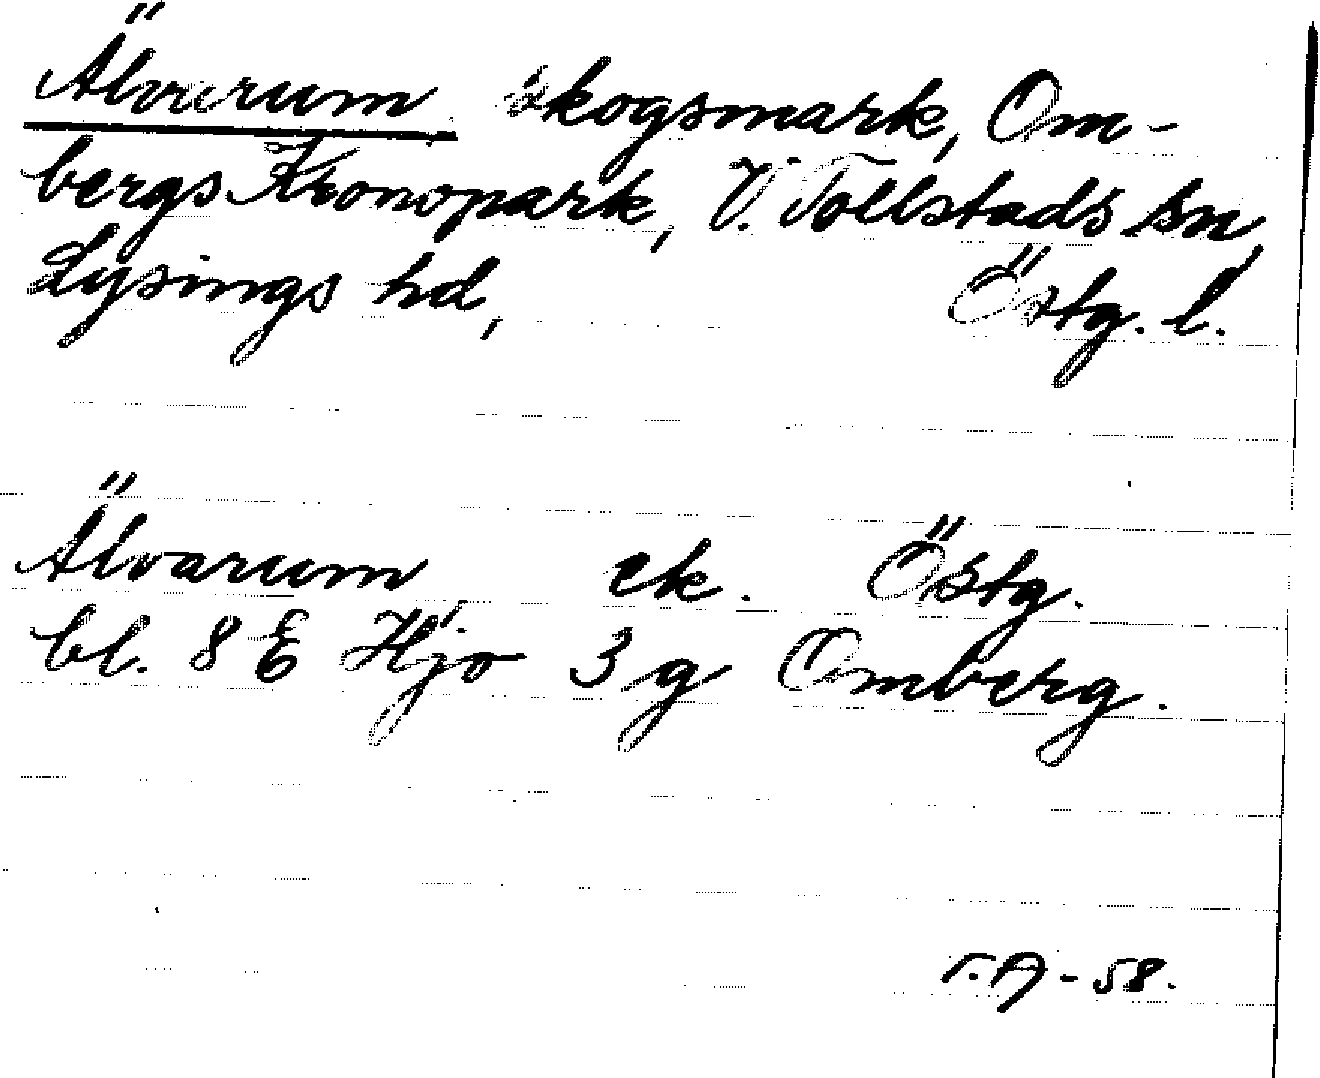 Älvarum skogsmark, Om-
bergs Kronopark, V. Tollstads sn,
Lysings hd, Östg. l.
Älvarum ek. Östg.
bl. 8 E Hjo 3 g Omberg.
T.A - 58.